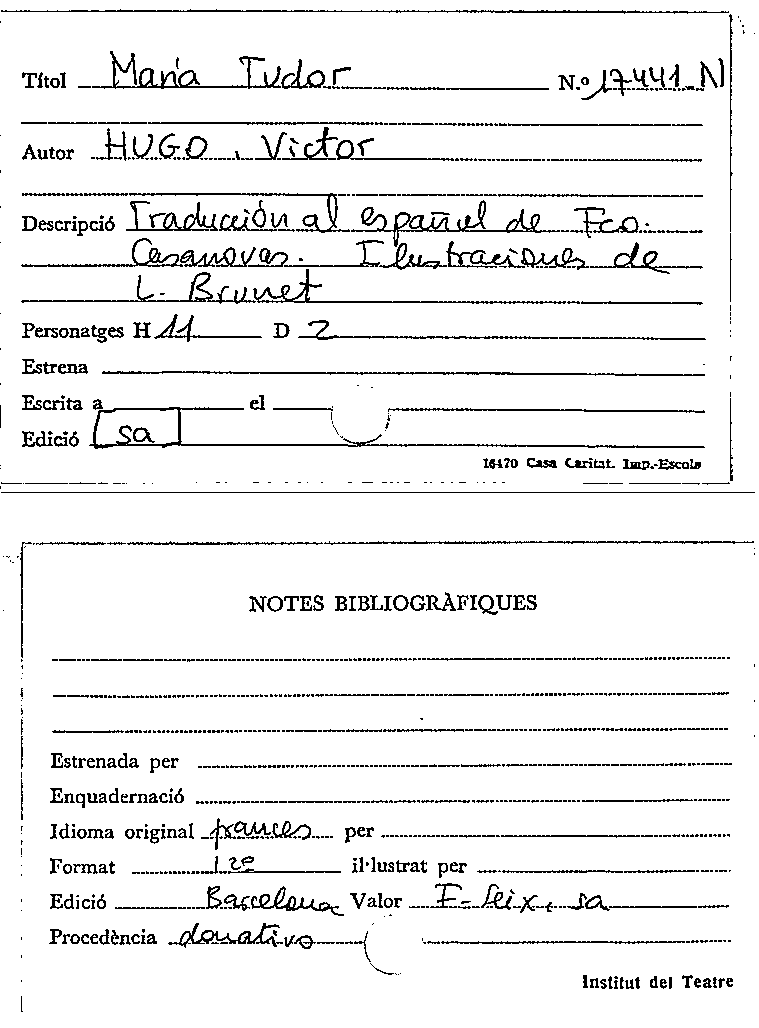 Títol María Tudor N.º 17441-N
Autor HUGO, Victor
Descripció Traducción al español de Fco.
Casanovas. Ilustraciones de
L. Brunet
Personatges H 11 D 2
Estrena
Escrita a el
Edició sa
16470 Casa Caritat. Imp.-Escols
NOTES BIBLIOGRÀFIQUES
Estrenada per
Enquadernació
Idioma original frances per
Format il·lustrat per
Edició Barcelona Valor F. Seix, sa
Procedència donativo
Institut del Teatre